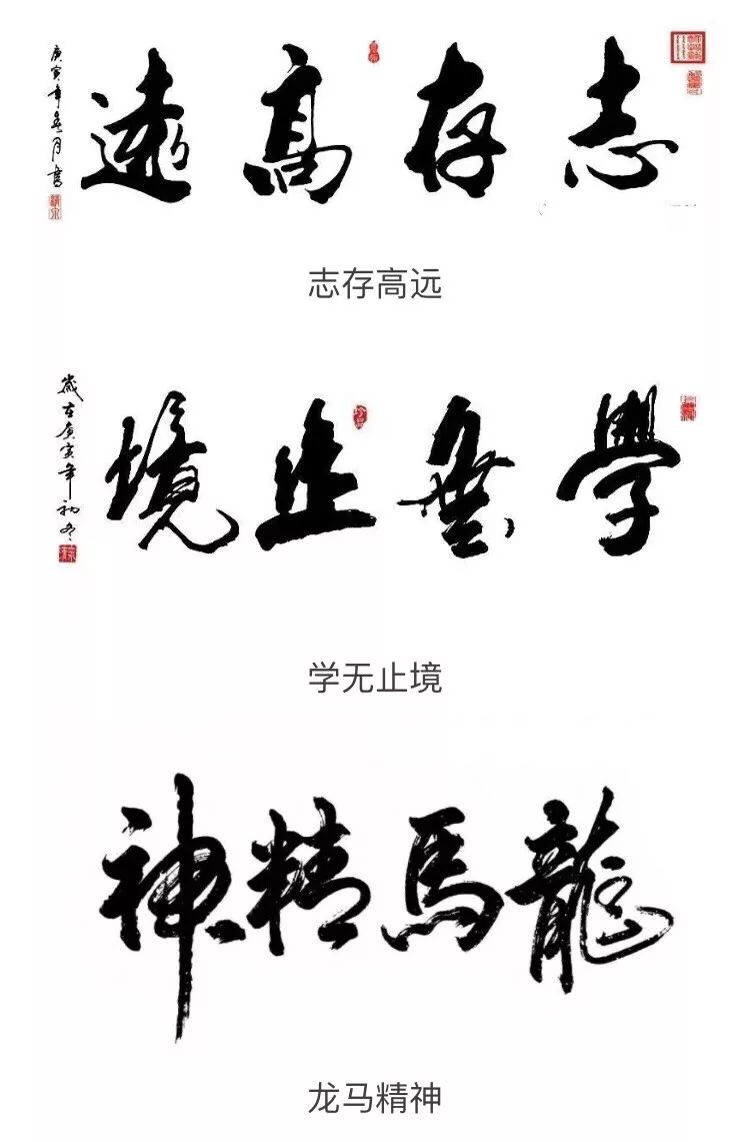 志存高遠
庚寅年 月書
志存高远
學無止境
歲在庚寅年初冬
学无止境
龍馬精神
龙马精神